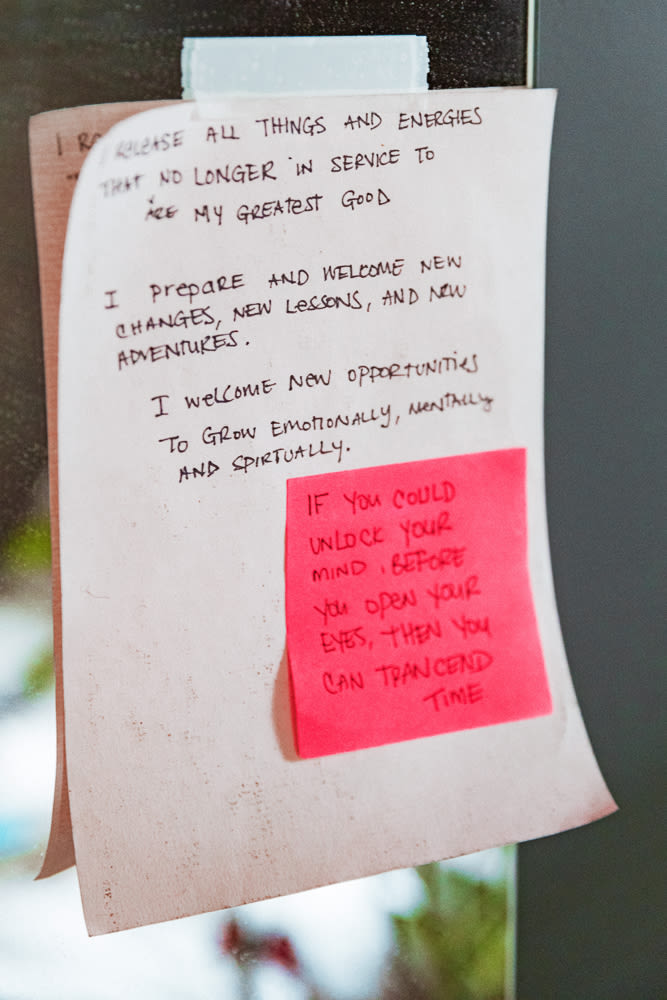 I RE
I RELEASE ALL THINGS AND ENERGIES
THAT NO LONGER IN SERVICE TO
ARE MY GREATEST GOOD
I PREPARE AND WELCOME NEW
CHANGES, NEW LESSONS, AND NEW
ADVENTURES.
I WELCOME NEW OPPORTUNITIES
TO GROW EMOTIONALLY, MENTALLY
AND SPIRTUALLY.
IF YOU COULD
UNLOCK YOUR
MIND, BEFORE
YOU OPEN YOUR
EYES, THEN YOU
CAN TRANCEND
TIME